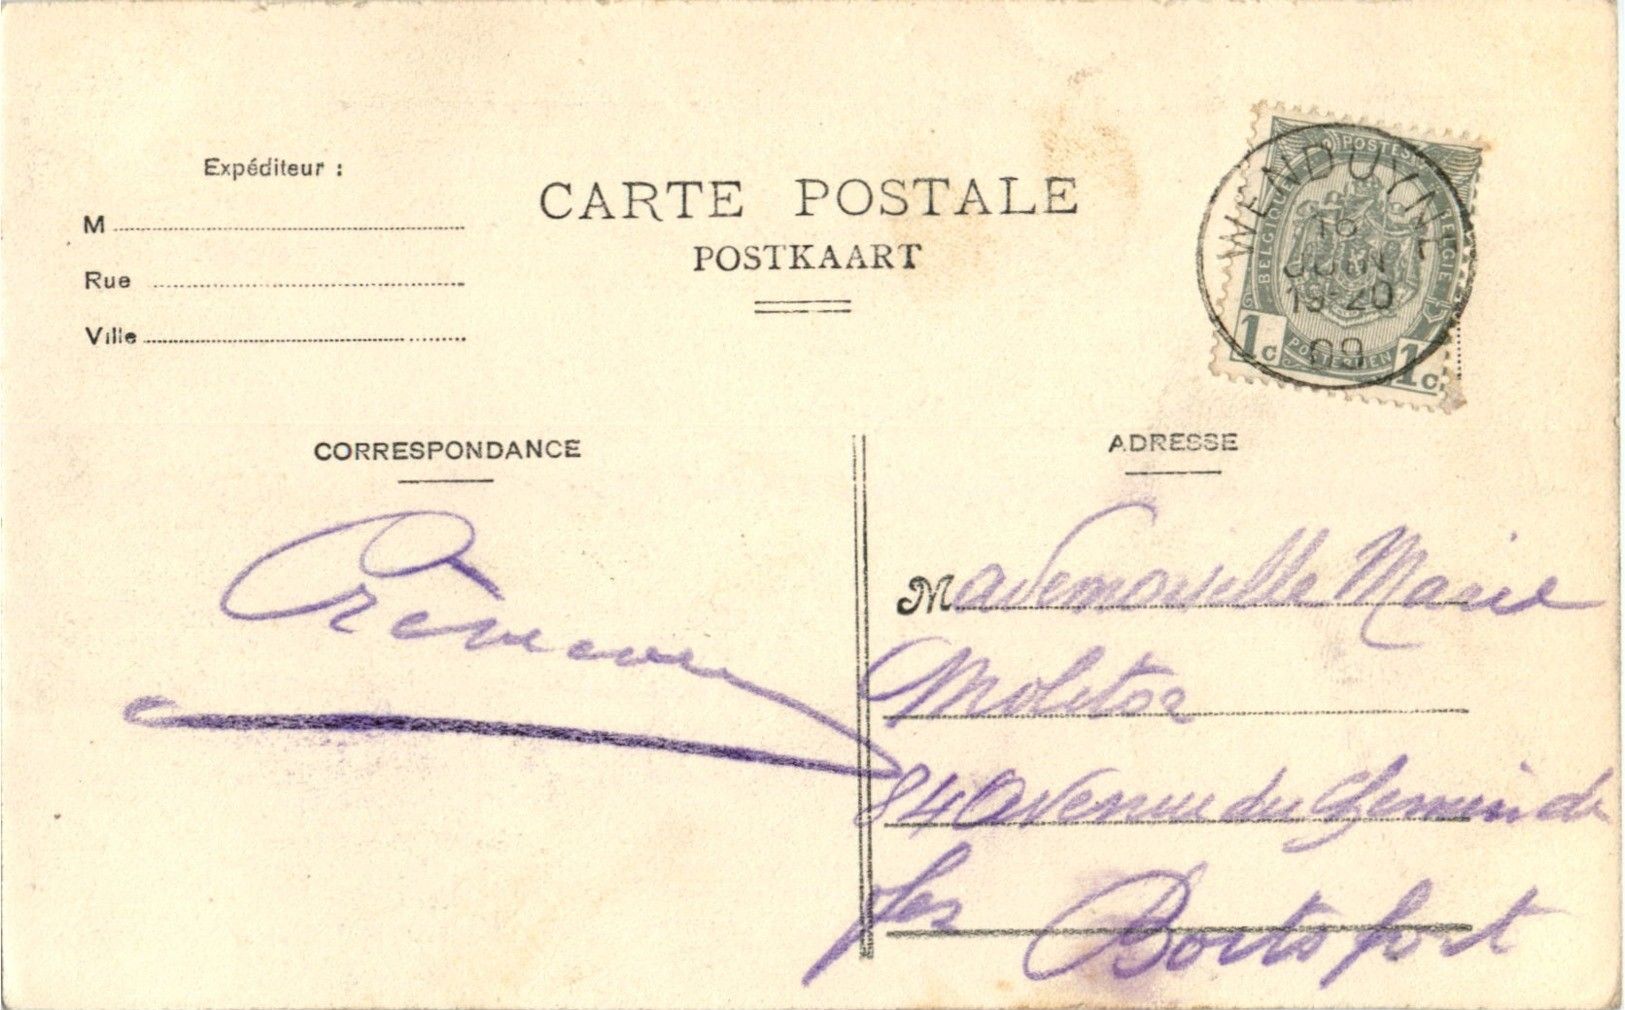 Expéditeur :
M
Rue
Ville
CARTE POSTALE
POSTKAART
POSTES
BELGIQUE
BELGIE
POSTERIJEN
1c
1c
WENDUYNE
16
JUIN
09
CORRESPONDANCE
ADRESSE
Mademoiselle Marie
Molitor
84 Avenue du Chemin de
fer Boitsfort